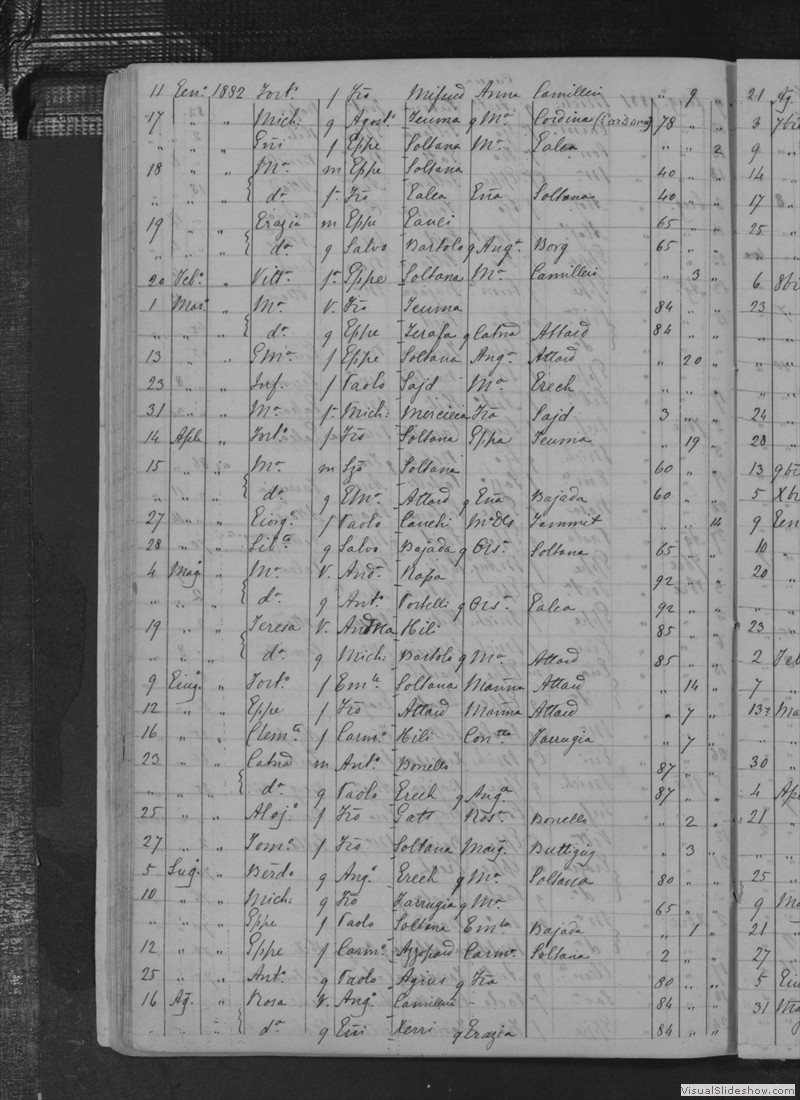 11 Gen.o 1882 Fort.o f Fro Mifsud Anna Camilleri " 9 "
17 " " Mich: g Agost.o Teuma g M.a Cordina (Cardona) 78 " "
" " " Giu f Gppe Soltana M.a Galea " " 2
18 " " M.a m Gppe Soltana 40 " "
" " " { d.a f. Fro Galea Gna Soltana 40 " "
19 " " Grazia m Gppe Gauci 65 " "
" " { d.a g Salvo Bartolo g Ang.a Borg 65 " "
20 Feb.o " Vitt.a f. Gppe Soltana M.a Camilleri " 3 "
1 Mar.o " M.a V. Fro Teuma 84 " "
" " " { d.a g Gppe Zerafa g Catna Attard 84 " "
13 " " G M.a f Gppe Soltana Ang.a Attard " 20 "
23 " " Inf. f Paolo Sajd M.a Grech " " "
31 " " M.a f. Mich: Mercieca Fra Sajd 3 " "
14 Aple " Fort.o f. Fro Soltana Gppa Teuma " 19 "
15 " " M.a m Lzo Soltana 60 " "
" " " { d.a g G M.a Attard g Gna Bajada 60 " "
27 " " Giorg.o f Paolo Cauchi M.a Dls Tammit " " 14
28 " " Lib.ta g Salvo Bajada g Ors.a Soltana 65 " "
4 Mag.o " M.a V. And.a Rapa 92 " "
" " " { d.a g Ant.o Portelli g Ors.a Galea 92 " "
19 " " Teresa V. Andrea Hili 85 " "
" " " { d.a g Mich: Bartolo g M.a Attard 85 " "
9 Giug.o " Fort.o f Em.le Soltana Marina Attard " 14 "
12 " " Gppe f Fro Attard Marina Attard " 7 "
16 " " Clem.ta f Carm.o Hili Con.tta Farrugia " 7 "
23 " " Catna m Ant.o Bonello 87 " "
" " " { d.a g Paolo Grech g Ang.a 87 " "
25 " " Aloj.o f Fro Gatt Ros.a Bonello " 2 "
27 " " Tom.o f Fro Soltana Marg. Buttigieg " 3 "
5 Lug.o " Berdo g Ang.o Grech g M.a Soltana 80 " "
10 " " Mich: g Fro Farrugia g M.a 65 " "
" " " Gppe f Paolo Soltana Em.la Bajada " 1 "
12 " " Gppe f Carm.o Azzopardi Carm.a Soltana 2 " "
25 " " Ant.o g Paolo Agius g Fra 80 " "
16 Ag. " Rosa V. Ang.o Camilleri - 84 " "
" " " { d.a g Giu Xerri g Grazia 84 " "
21 Ag.
3 7bre
9 "
14
17 "
25 "
" "
6 8bre
23 "
24 "
28 "
13 9bre
5 Xbre
9 Gen
10 "
20
" "
23 "
2 Feb
7 "
13
" "
30 "
4 Ap
21 "
" "
25 "
9
21 "
27 "
5
31
VisualSlideshow.com